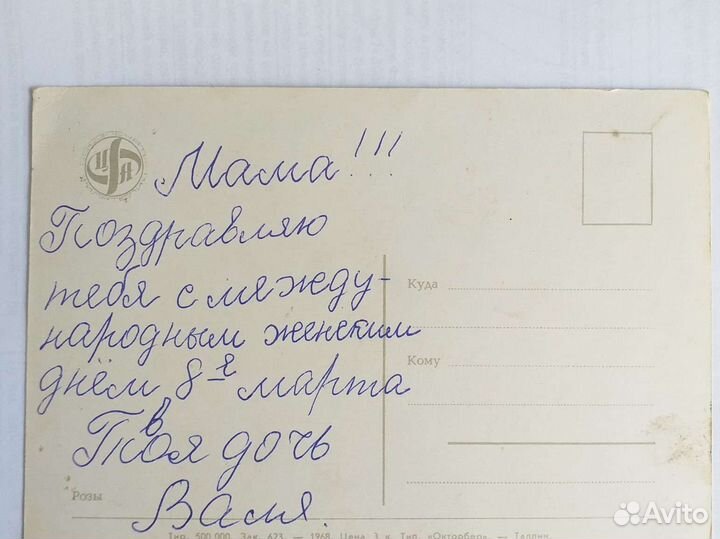 ЦФА
Мама!!!
Поздравляю
тебя с между-
народным женским
днём 8-е марта
Твоя дочь
Валя.
Куда
Кому
Розы
Тир. 500.000. Зак. 623. — 1968. Цена 3 к. Тип. «Октообер». — Таллин.
Avito